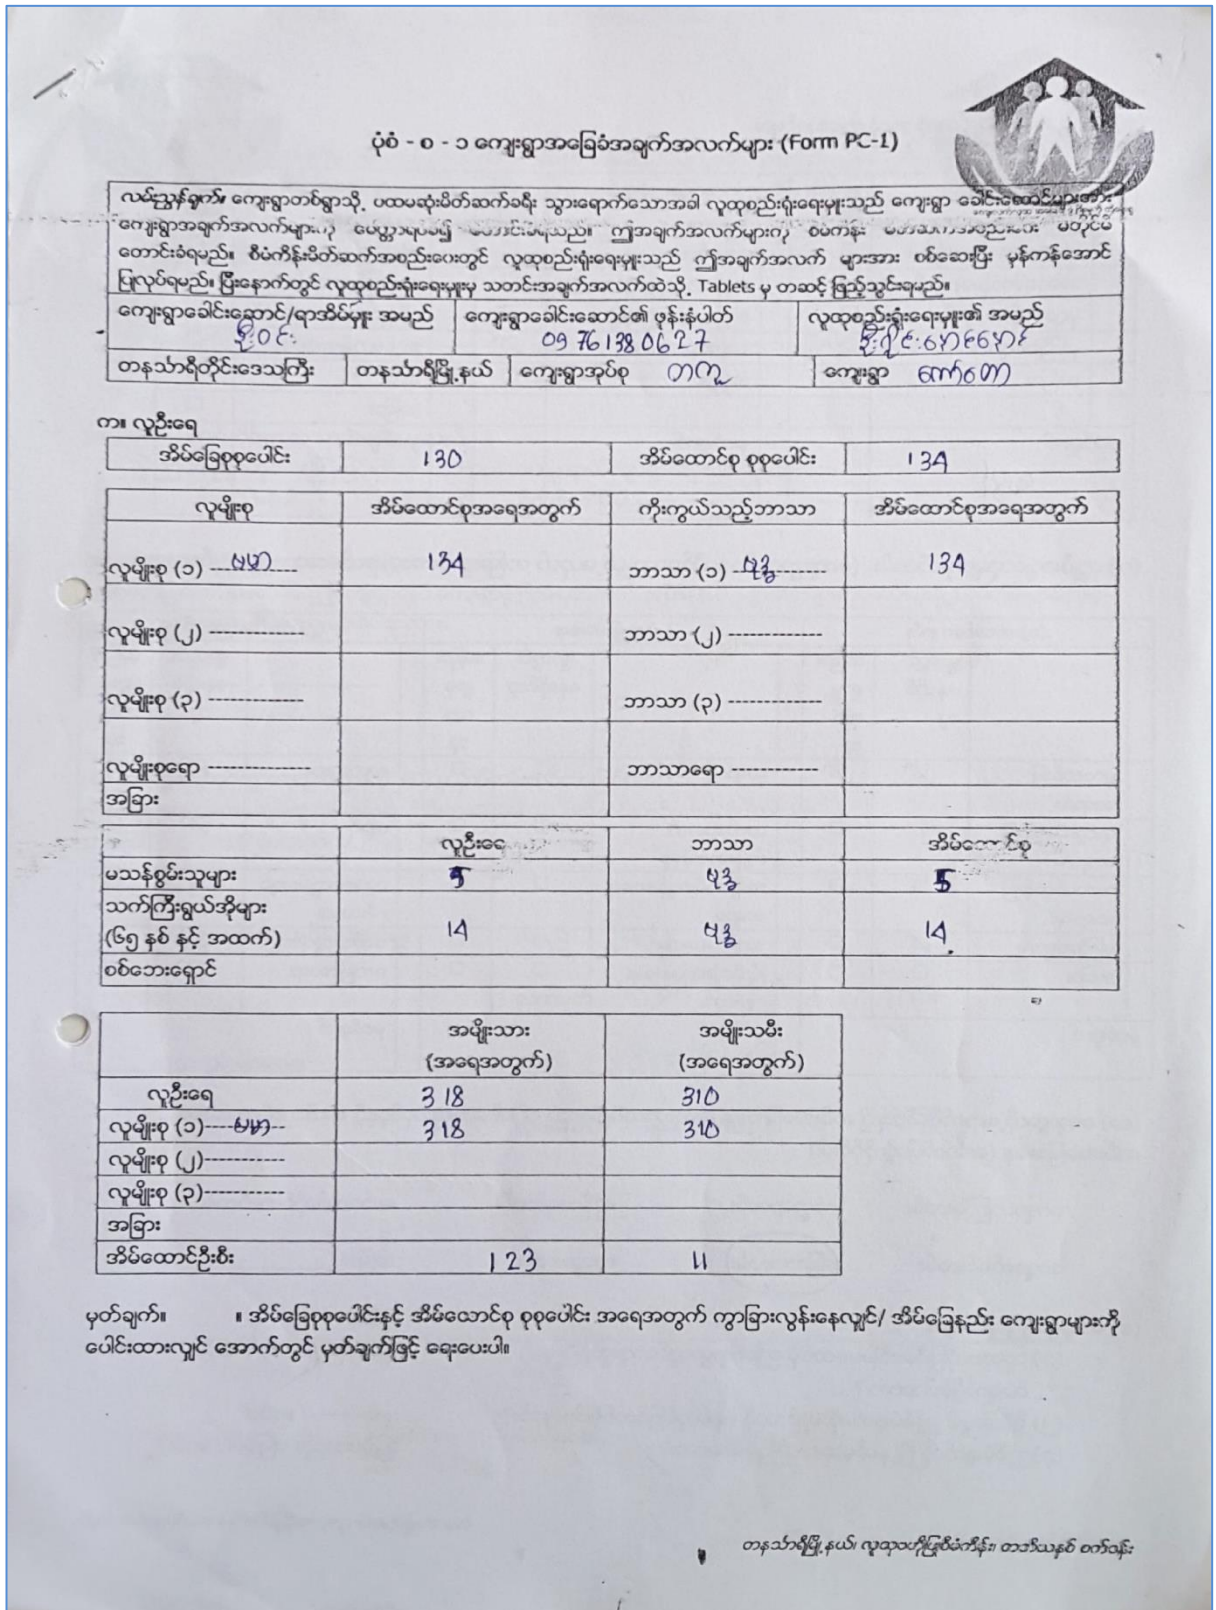 ပုံစံ - စ - ၁ ကျေးရွာအခြေခံအချက်အလက်များ (Form PC-1)
လမ်းညွှန်ချက်။ ကျေးရွာတစ်ရွာသို့ ပထမဆုံးမိတ်ဆက်ခရီး သွားရောက်သောအခါ လူထုစည်းရုံးရေးမှူးသည် ကျေးရွာ ခေါင်းဆောင်များအား
ကျေးရွာအချက်အလက်များကို ဤအချက်အလက်များကို စီမံကိန်း မတိုင်မီ
တောင်းခံရမည်။ စီမံကိန်းမိတ်ဆက်အစည်းဝေးတွင် လူထုစည်းရုံးရေးမှူးသည် ဤအချက်အလက် များအား စစ်ဆေးပြီး မှန်ကန်အောင်
ပြုလုပ်ရမည်။ ပြီးနောက်တွင် လူထုစည်းရုံးရေးမှူးမှ သတင်းအချက်အလက်ထဲသို့ Tablets မှ တဆင့် ဖြည့်သွင်းရမည်။
ကျေးရွာခေါင်းဆောင်/ရာအိမ်မှူး အမည် ကျေးရွာခေါင်းဆောင်၏ ဖုန်းနံပါတ် လူထုစည်းရုံးရေးမှူး၏ အမည်
ဦးဝင်း 09 761380627
တနင်္သာရီတိုင်းဒေသကြီး တနင်္သာရီမြို့နယ် ကျေးရွာအုပ်စု တကူ ကျေးရွာ
က။ လူဦးရေ
အိမ်ခြေစုစုပေါင်း 130 အိမ်ထောင်စု စုစုပေါင်း 134
လူမျိုးစု အိမ်ထောင်စုအရေအတွက် ကိုးကွယ်သည့်ဘာသာ အိမ်ထောင်စုအရေအတွက်
လူမျိုးစု (၁) ဗမာ 134 ဘာသာ (၁) ဗုဒ္ဓ 134
လူမျိုးစု (၂) -------------- ဘာသာ (၂) --------------
လူမျိုးစု (၃) -------------- ဘာသာ (၃) --------------
လူမျိုးစုရော -------------- ဘာသာရော -------------
အခြား
လူဦးရေ ဘာသာ အိမ်ထောင်စု
မသန်စွမ်းသူများ 5 ဗုဒ္ဓ 5
သက်ကြီးရွယ်အိုများ
(၆၅ နှစ် နှင့် အထက်) 14 ဗုဒ္ဓ 14
စစ်ဘေးရှောင်
အမျိုးသား အမျိုးသမီး
(အရေအတွက်) (အရေအတွက်)
လူဦးရေ 318 310
လူမျိုးစု (၁)----ဗမာ-- 318 310
လူမျိုးစု (၂)------------
လူမျိုးစု (၃)------------
အခြား
အိမ်ထောင်ဦးစီး 123 11
မှတ်ချက်။ ။ အိမ်ခြေစုစုပေါင်းနှင့် အိမ်ထောင်စု စုစုပေါင်း အရေအတွက် ကွာခြားလွန်းနေလျှင်/ အိမ်ခြေနည်း ကျေးရွာများကို
ပေါင်းထားလျှင် အောက်တွင် မှတ်ချက်ဖြင့် ရေးပေးပါ။
တနင်္သာရီမြို့နယ်၊ လူထုဗဟိုပြုစီမံကိန်း၊ တတိယနှစ် စက်ဝန်း